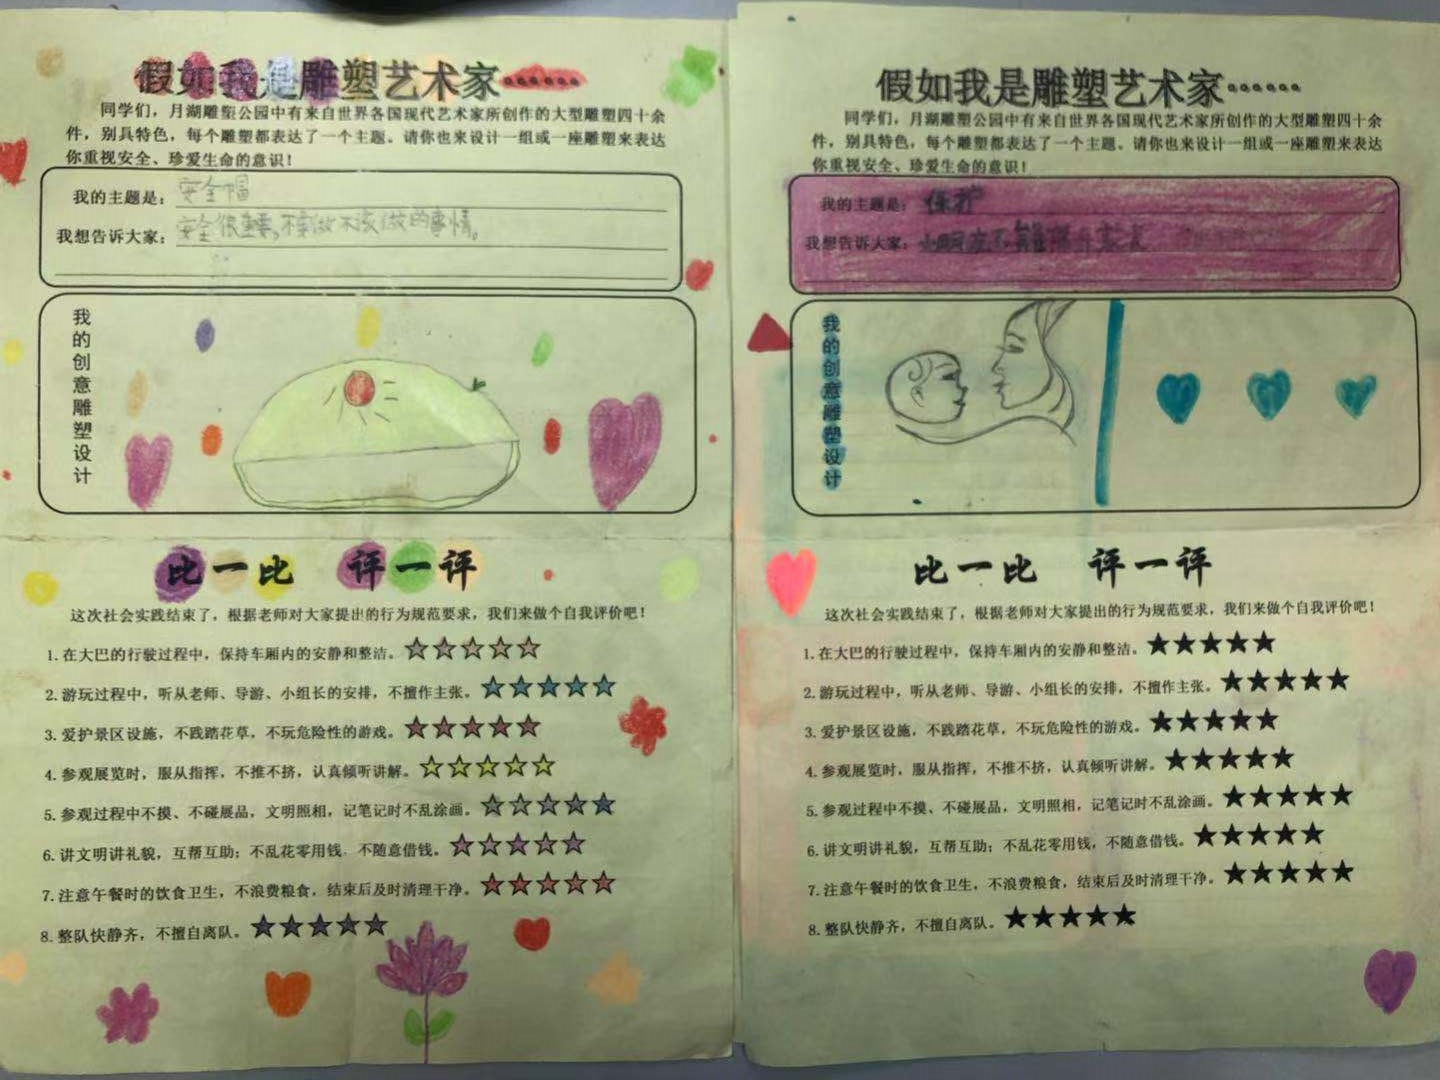 假如我是雕塑艺术家……
同学们，月湖雕塑公园中有来自世界各国现代艺术家所创作的大型雕塑四十余
件，别具特色，每个雕塑都表达了一个主题。请你也来设计一组或一座雕塑来表达
你重视安全、珍爱生命的意识！
我的主题是：安全帽
我想告诉大家：安全很重要，不要做不该做的事情。
我的创意雕塑设计
比一比 评一评
这次社会实践结束了，根据老师对大家提出的行为规范要求，我们来做个自我评价吧！
1.在大巴的行驶过程中，保持车厢内的安静和整洁。☆☆☆☆☆
2.游玩过程中，听从老师、导游、小组长的安排，不擅作主张。☆☆☆☆☆
3.爱护景区设施，不践踏花草，不玩危险性的游戏。☆☆☆☆☆
4.参观展览时，服从指挥，不推不挤，认真倾听讲解。☆☆☆☆☆
5.参观过程中不摸、不碰展品，文明照相，记笔记时不乱涂画。☆☆☆☆☆
6.讲文明讲礼貌，互帮互助；不乱花零用钱，不随意借钱。☆☆☆☆☆
7.注意午餐时的饮食卫生，不浪费粮食，结束后及时清理干净。☆☆☆☆☆
8.整队快静齐，不擅自离队。☆☆☆☆☆
假如我是雕塑艺术家……
同学们，月湖雕塑公园中有来自世界各国现代艺术家所创作的大型雕塑四十余
件，别具特色，每个雕塑都表达了一个主题。请你也来设计一组或一座雕塑来表达
你重视安全、珍爱生命的意识！
我的主题是：保护
我想告诉大家：
我的创意雕塑设计
比一比 评一评
这次社会实践结束了，根据老师对大家提出的行为规范要求，我们来做个自我评价吧！
1.在大巴的行驶过程中，保持车厢内的安静和整洁。★★★★★
2.游玩过程中，听从老师、导游、小组长的安排，不擅作主张。★★★★★
3.爱护景区设施，不践踏花草，不玩危险性的游戏。★★★★★
4.参观展览时，服从指挥，不推不挤，认真倾听讲解。★★★★★
5.参观过程中不摸、不碰展品，文明照相，记笔记时不乱涂画。★★★★★
6.讲文明讲礼貌，互帮互助；不乱花零用钱，不随意借钱。★★★★★
7.注意午餐时的饮食卫生，不浪费粮食，结束后及时清理干净。★★★★★
8.整队快静齐，不擅自离队。★★★★★